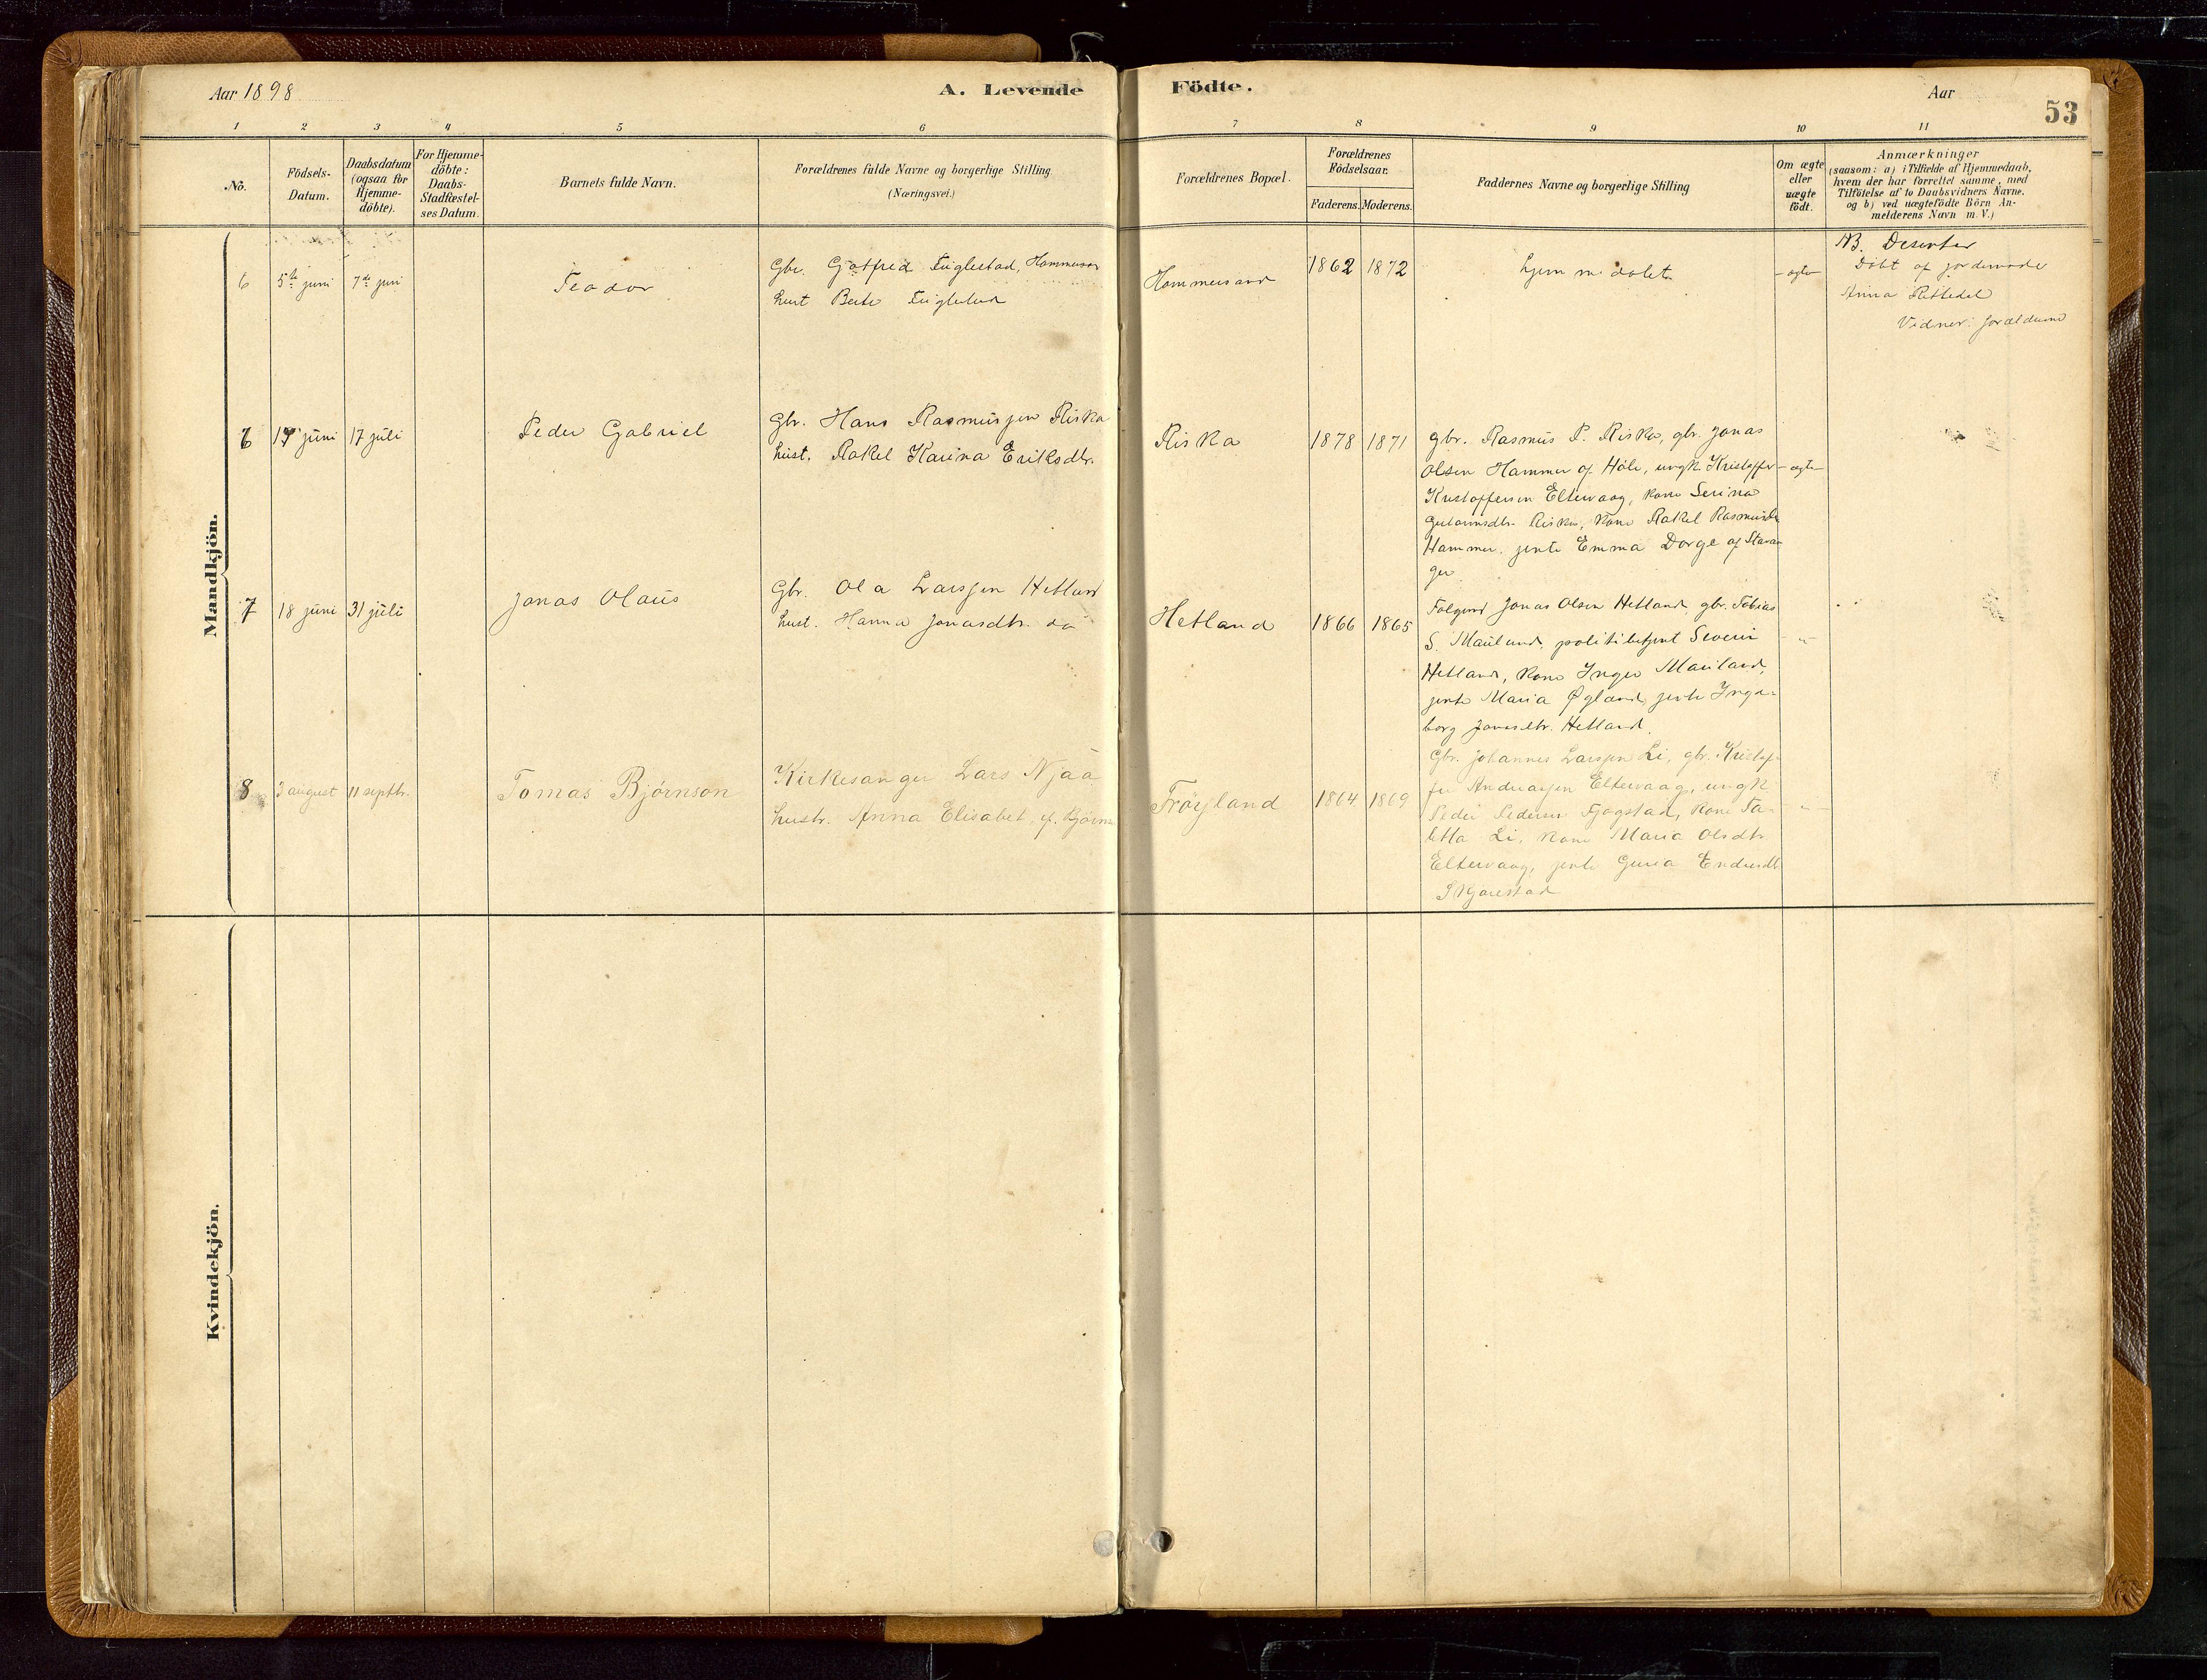 Aar 1898
A. Levende
Födte.
Aar
53
1 2 3 4 5 6 7 8 9 10 11
No.
Födsels-
Datum.
Daabsdatum
(ogsaa for
Hjemme-
döbte).
For Hjemme-
döbte:
Daabs-
Stadfæstel-
ses Datum.
Barnets fulde Navn.
Forældrenes fulde Navne og borgerlige Stilling
(Næringsvei.)
Forældrenes Bopæl.
Forældrenes
Födselsaar.
Faderens.
Moderens.
Faddernes Navne og borgerlige Stilling
Om ægte
eller
uægte
födt.
Anmærkninger
(saasom: a) i Tilfælde af Hjemmedaab,
hvem der har forrettet samme, med
Tilföielse af to Daabsvidners Navne.
og b) ved uægtefödte Börn An-
melderens Navn m. V.)
Mandkjön.
6
5te juni
7de juni
Teodor
Gbr. Gotfred Fuglestad, Hommersan
hust Berte Fuglestad
Hommersand
1862
1872
hjemmedöbt
- ægte
NB. Desenter
Döbt af jordemode
Anna Rettedal
Vidner: forældrene
6
17 juni
17 juli
Peder Gabriel
Gbr. Hans Rasmussen Riska
hust. Rakel Karina Eriksdtr.
Riska
1878
1871
gbr. Rasmus P. Riska, gbr. Jonas
Olsen Hammer af Höle, ungk. Kristoffer
Kristoffersen Eltervaag, kone Serina
Riska, kone Rakel Rasmusdtr
Hammer. jente Emma Dorge af Stavan
ger.
- ægte -
7
18 juni
31 juli
Jonas Olaus
Gbr. Ola Larssen Hetland
hust. Hanna Jonasdtr. do
Hetland
1866
1865
Folgemd Jonas Olsen Hetland, gbr. Tobias
S. Mauland, politibetjent Severin
Hetland, kone Inger Mauland,
jente Maria Øgland, jente Inge-
borg Jonasdtr. Hetland.
- " -
8
3 august
11 septbr.
Tomas Bjørnson
Kirkesanger Lars Njaa
hustr. Anna Elisabet, f. Bjørns
Frøyland
1864
1869
Gbr. Johannes Larssen Li, gbr. Kristof-
fer Andreassen Eltervaag, ungk.
Peder Pedersen Fjogstad, kone Ta-
letta Li, kone Maria Olsdtr.
Eltervaag, jente Guria Endresdtr
Skjørestad
- " -
Kvindekjön.